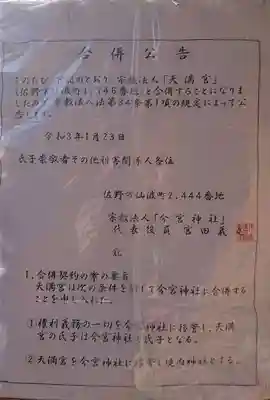 合併公告
このたび下記のとおり宗教法人「天満宮」
(佐野市仙波町1,746番地)と合併することになりま
したので宗教法人法第34条第1項の規定によって公
告します。
令和3年1月23日
氏子崇敬者その他利害関係人各位
佐野市仙波町2,444番地
宗教法人「今宮神社」
代表役員 宮田義
記
1.合併契約の案の要旨
天満宮は次の条件を付して今宮神社に合併する
ことを申し入れた。
①権利義務の一切を今宮神社に移管し、天満
宮の氏子は今宮神社の氏子となる。
②天満宮を今宮神社に移管し境内神社とする。